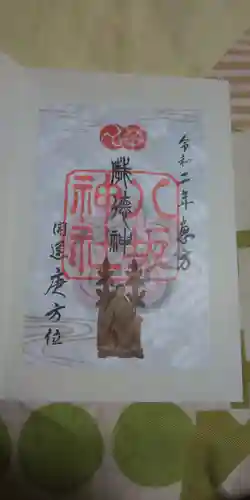 令和二年恵方
歳德神
八坂神社
開運庚方位